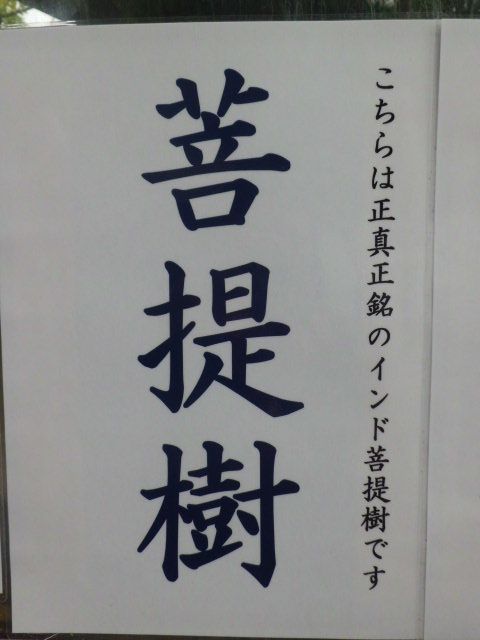 こちらは正真正銘のインド菩提樹です
菩提樹